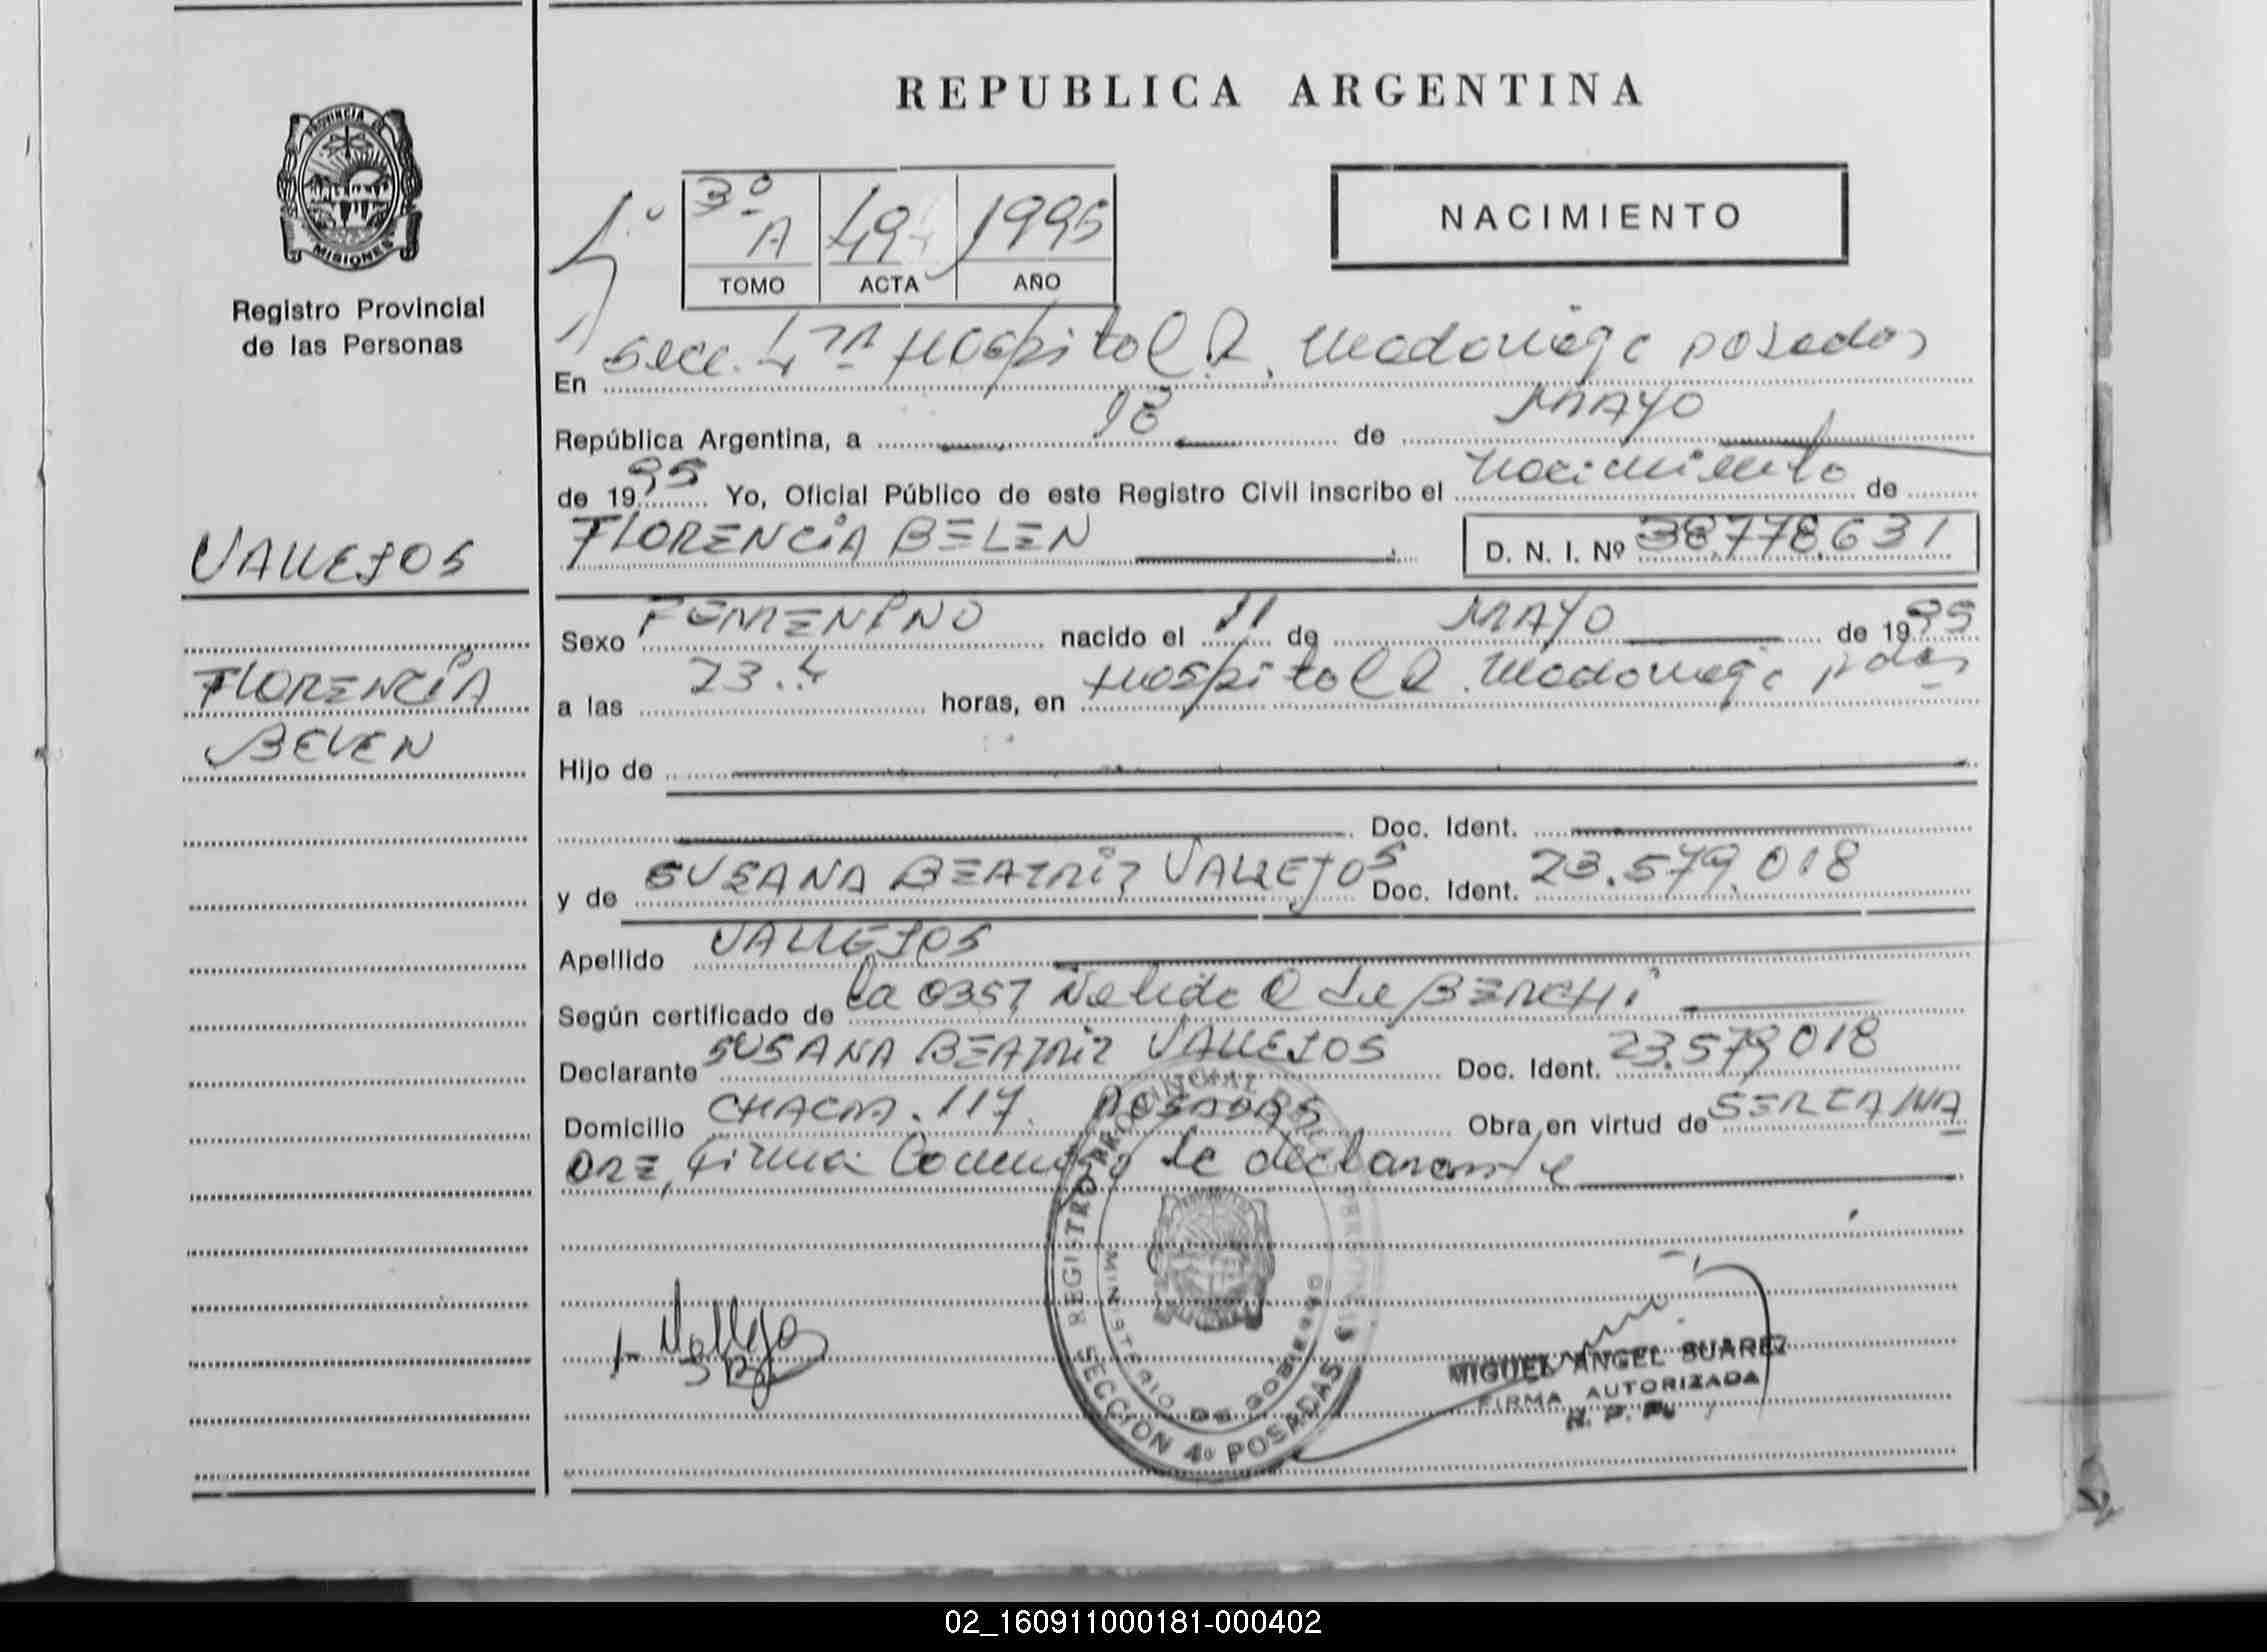 REPUBLICA ARGENTINA
PROVINCIA DE
MISIONES
Registro Provincial
de las Personas
1º
3º A 1995
TOMO ACTA AÑO
NACIMIENTO
En Secc. 4ta Hospital R. Madariaga posadas
República Argentina, a 18 de MAYO
de 1995 Yo, Oficial Público de este Registro Civil inscribo el nacimiento de
FLORENCIA BELEN D. N. I. Nº 38.778.631
VALLEJOS
FLORENCIA
BELEN
Sexo FEMENINO nacido el 11 de MAYO de 1995
a las 23.4 horas, en Hospital R. Madariaga pdas
Hijo de
Doc. Ident.
y de SUSANA BEATRIZ VALLEJOS Doc. Ident. 23.579.018
Apellido VALLEJOS
Según certificado de la 0357 Nelida
Declarante SUSANA BEATRIZ VALLEJOS Doc. Ident. 23.579018
Domicilio CHACRA. 117. POSADAS Obra en virtud de SER LA MA
DRE, firma la declarante
Vallejos
SB
REGISTRO PROVINCIAL DE
MINISTERIO DE GOBIERNO
SECCIÓN 4º POSADAS
MIGUEL ANGEL SUAREZ
FIRMA AUTORIZADA
R. P. P.
02_160911000181-000402